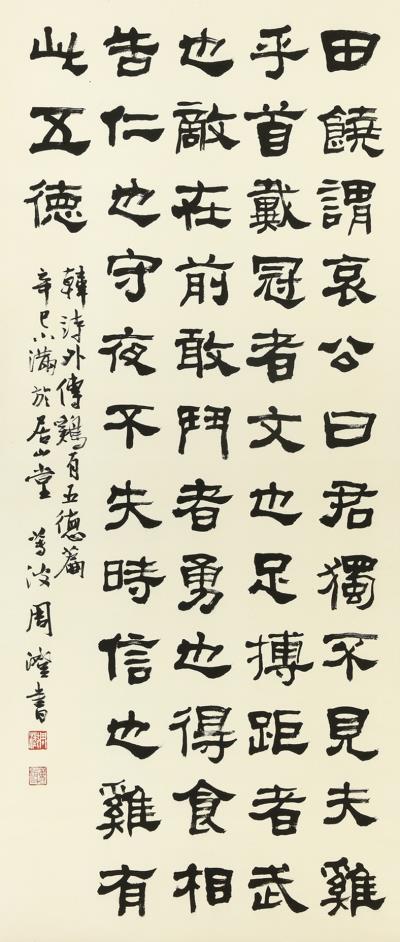 田饒謂哀公曰君獨不見夫雞
乎首戴冠者文也足搏距者武
也敵在前敢鬥者勇也得食相
告仁也守夜不失時信也雞有
此五德
韓詩外傳鷄有五德篇
辛巳小滿於居山堂 蓴波周澄書